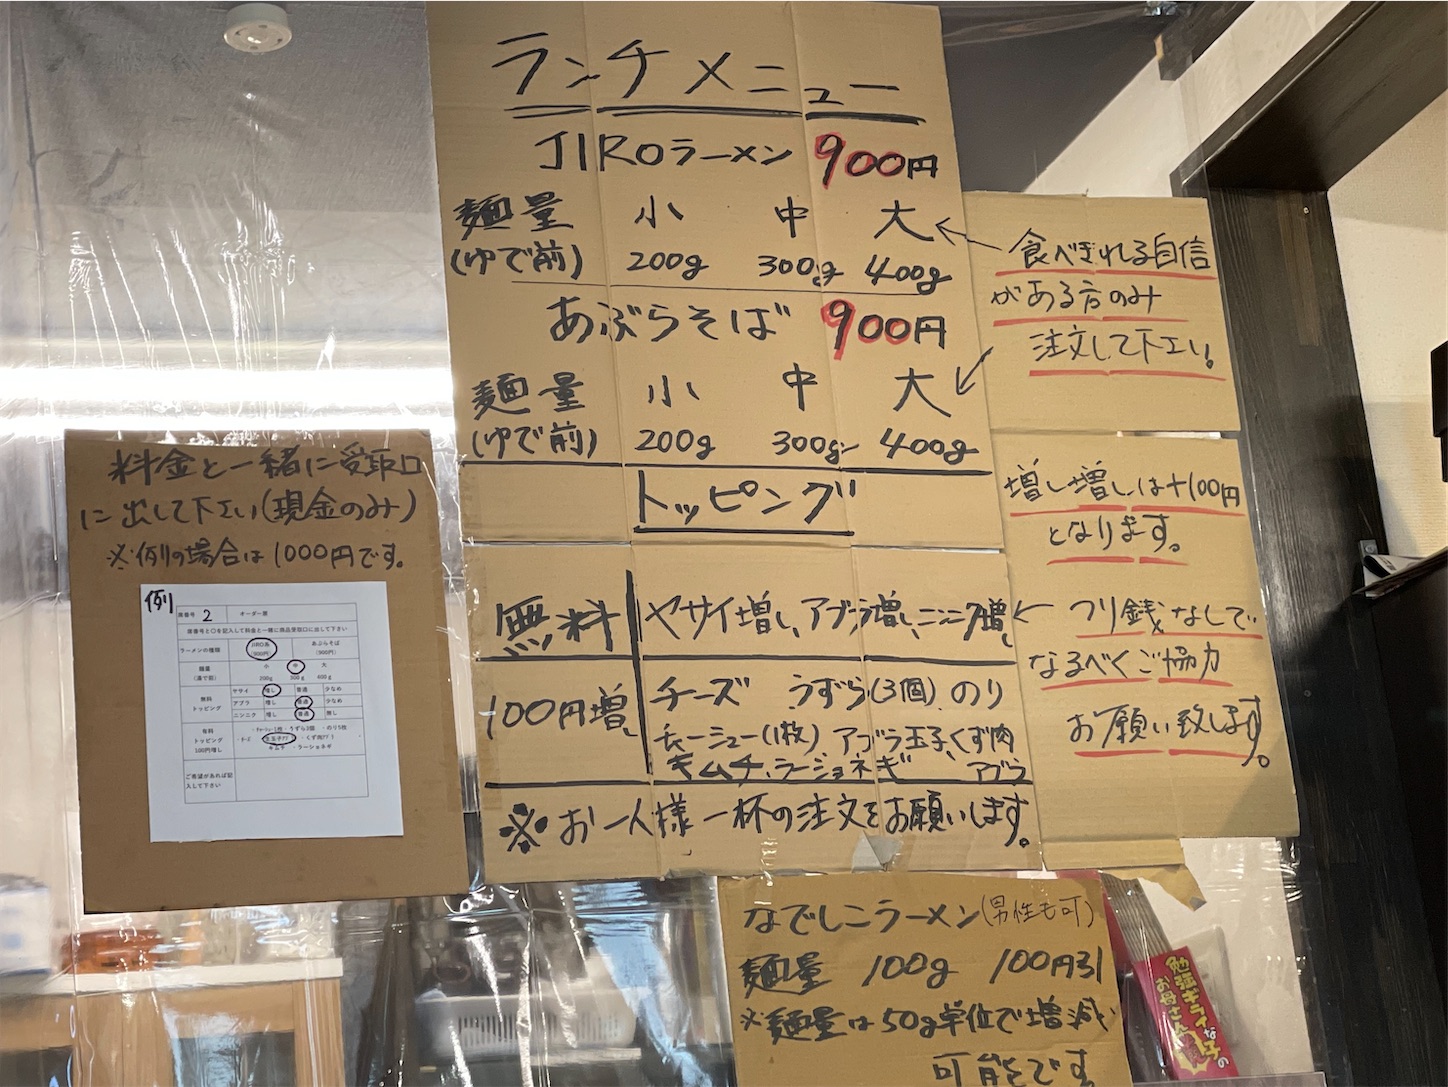 ランチメニュー
JIROラーメン 900円
麺量 小 中 大
(ゆで前) 200g 300g 400g
あぶらそば 900円
麺量 小 中 大
(ゆで前) 200g 300g 400g
トッピング
無料 ヤサイ増し、アブラ増し、ニンニク増し
100円増し チーズ うずら(3個)、のり
チャーシュー(1枚)、アブラ玉子、くず肉
キムチ、ラーショネギ アブラ
※お一人様一杯の注文をお願いします。
食べきれる自信
がある方のみ
注文して下さい。
増し増しは+100円
となります。
つり銭なしで
なるべくご協力
お願い致します。
料金と一緒に受取口
に出して下さい(現金のみ)
※例の場合は1000円です。
例
席番号 2 オーダー票
席番号と〇を記入して料金と一緒に商品受取口に出して下さい
ラーメンの種類 JIRO系 あぶらそば
(900円) (900円)
麺量 小 中 大
(湯で前) 200g 300g 400g
無料 ヤサイ 増し 普通 少なめ
トッピング アブラ 増し 普通 少なめ
ニンニク 増し 普通 無し
有料 ・チャーシュー1枚・うずら3個・のり5枚
トッピング ・チーズ ・くず肉アブラ
100円増し ・キムチ ・ラーショネギ
ご希望があれば記
入して下さい
なでしこラーメン(男性も可)
麺量 100g 100円引
※麺量は50g単位で増減
可能です
勉強ギライな子の
お母さん